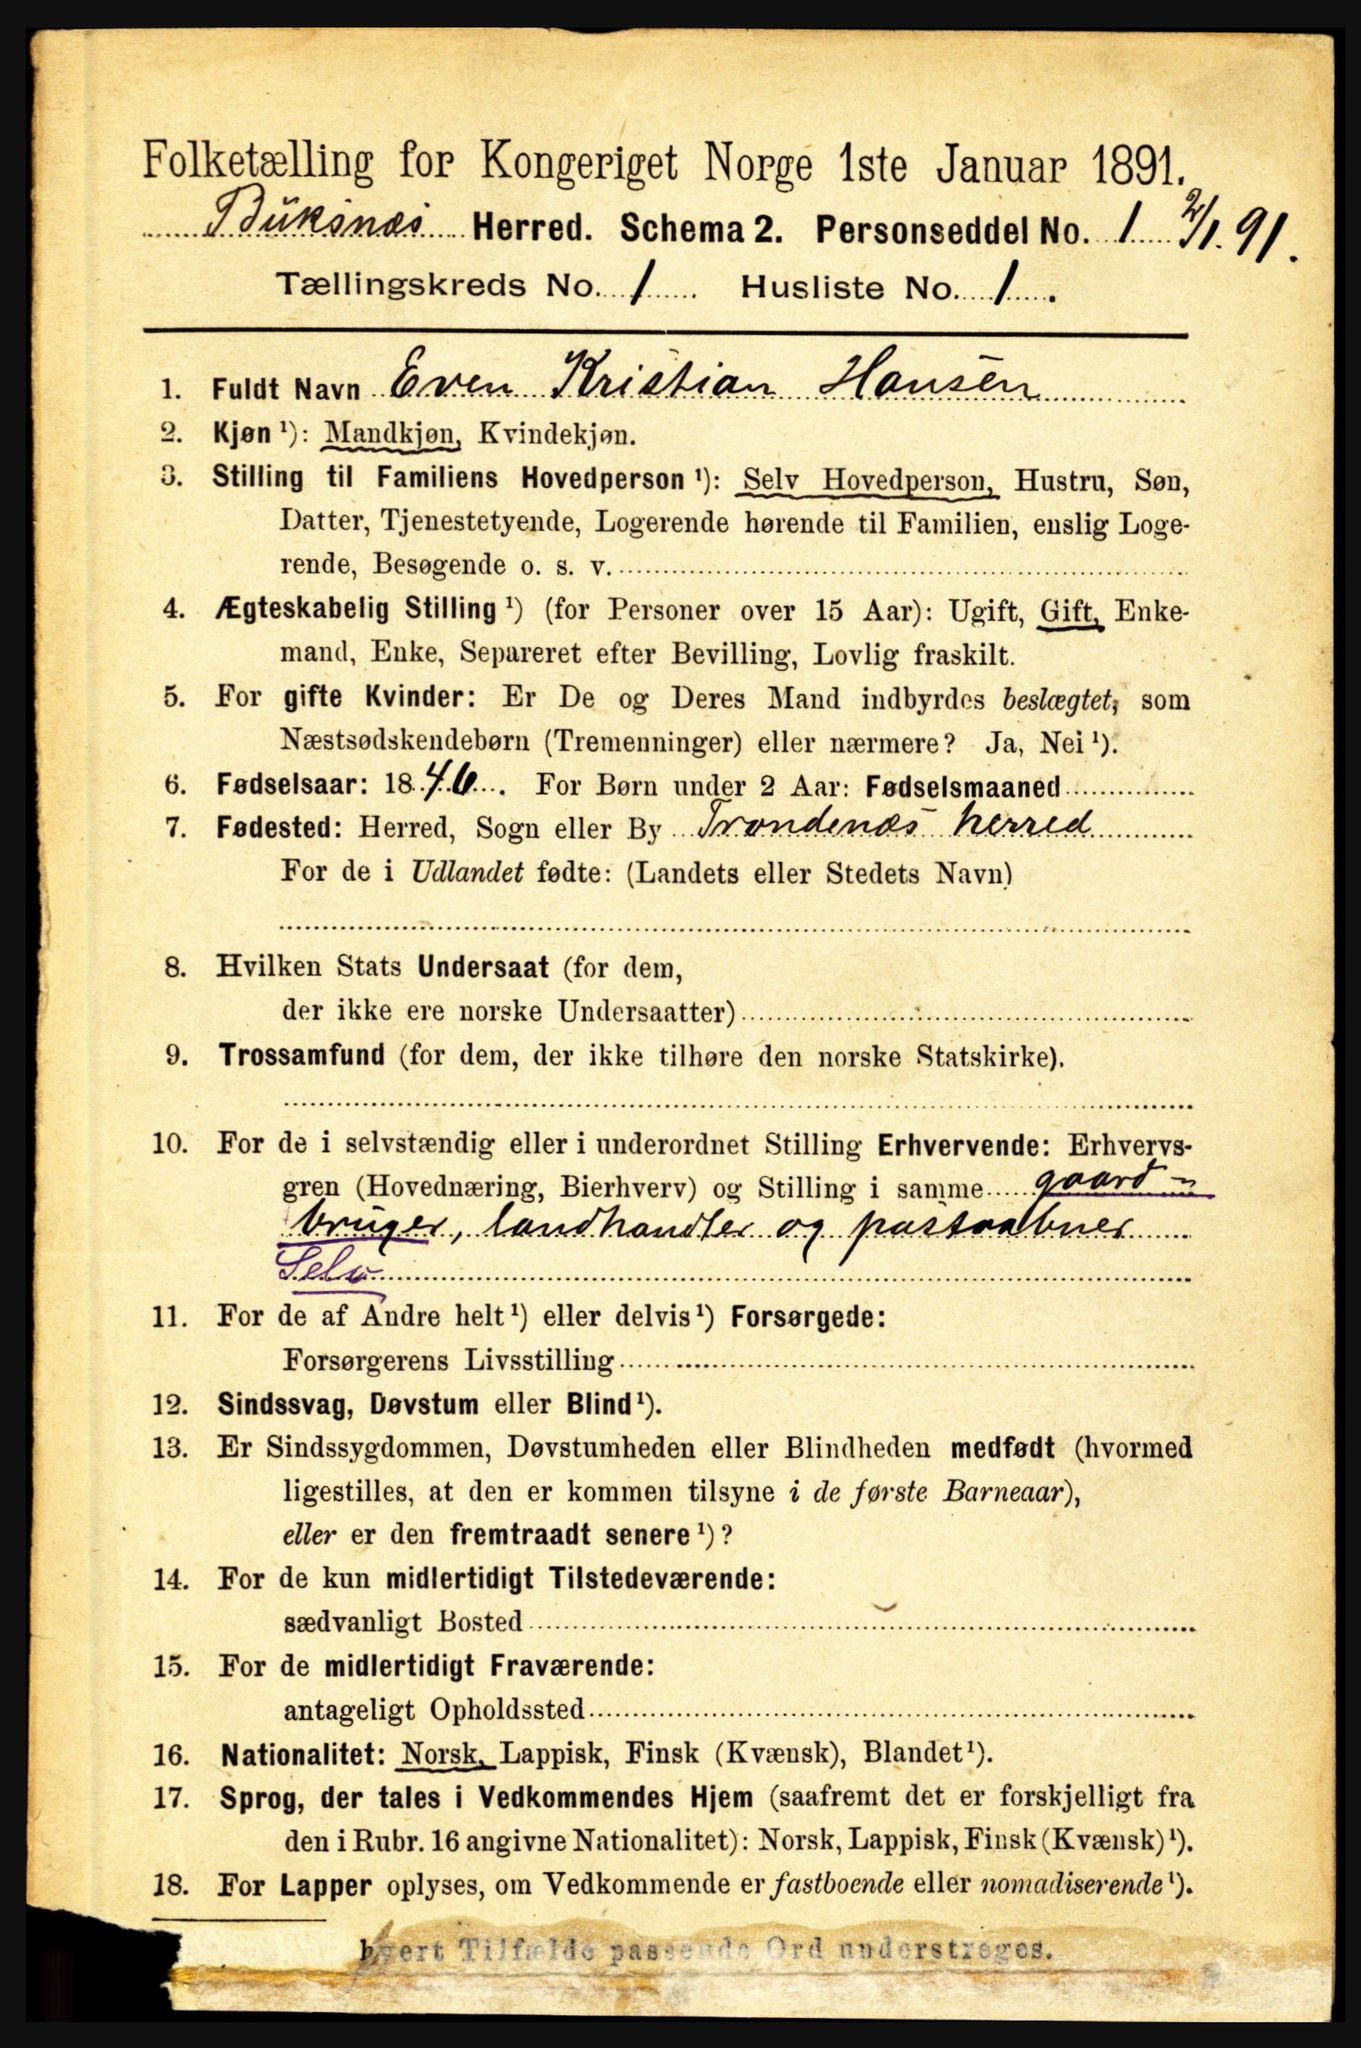 Folketælling for Kongeriget Norge 1ste Januar 1891.
Buksnæs Herred. Schema 2. Personseddel No. 1 2/1. 91.
Tællingskreds No. 1 Husliste No. 1.
1. Fuldt Navn Even Kristian Hansen
2. Kjøn ¹): Mandkjøn, Kvindekjøn.
3. Stilling til Familiens Hovedperson ¹): Selv Hovedperson, Hustru, Søn,
Datter, Tjenestetyende, Logerende hørende til Familien, enslig Loge-
rende, Besøgende o. s. v.
4. Ægteskabelig Stilling ¹) (for Personer over 15 Aar): Ugift, Gift, Enke-
mand, Enke, Separeret efter Bevilling, Lovlig fraskilt.
5. For gifte Kvinder: Er De og Deres Mand indbyrdes beslægtet, som
Næstsødskendebørn (Tremenninger) eller nærmere? Ja, Nei ¹).
6. Fødselsaar: 1846. For Børn under 2 Aar: Fødselsmaaned
7. Fødested: Herred, Sogn eller By Trondenæs herred
For de i Udlandet fødte: (Landets eller Stedets Navn)
8. Hvilken Stats Undersaat (for dem,
der ikke ere norske Undersaatter)
9. Trossamfund (for dem, der ikke tilhøre den norske Statskirke).
10. For de i selvstændig eller i underordnet Stilling Erhvervende: Erhvervs-
gren (Hovednæring, Bierhverv) og Stilling i samme gaard-
bruger, landhandler og postaabner
Selv
11. For de af Andre helt ¹) eller delvis ¹) Forsørgede:
Forsørgerens Livsstilling
12. Sindssvag, Døvstum eller Blind ¹).
13. Er Sindssygdommen, Døvstumheden eller Blindheden medfødt (hvormed
ligestilles, at den er kommen tilsyne i de første Barneaar),
eller er den fremtraadt senere ¹)?
14. For de kun midlertidigt Tilstedeværende:
sædvanligt Bosted
15. For de midlertidigt Fraværende:
antageligt Opholdssted
16. Nationalitet: Norsk, Lappisk, Finsk (Kvænsk), Blandet ¹).
17. Sprog, der tales i Vedkommendes Hjem (saafremt det er forskjelligt fra
den i Rubr. 16 angivne Nationalitet): Norsk, Lappisk, Finsk (Kvænsk) ¹).
18. For Lapper oplyses, om Vedkommende er fastboende eller nomadiserende ¹).
hvert Tilfælde passende Ord understreges.